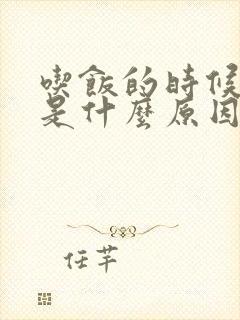 喫飯的時候
是什麼原因
任芊